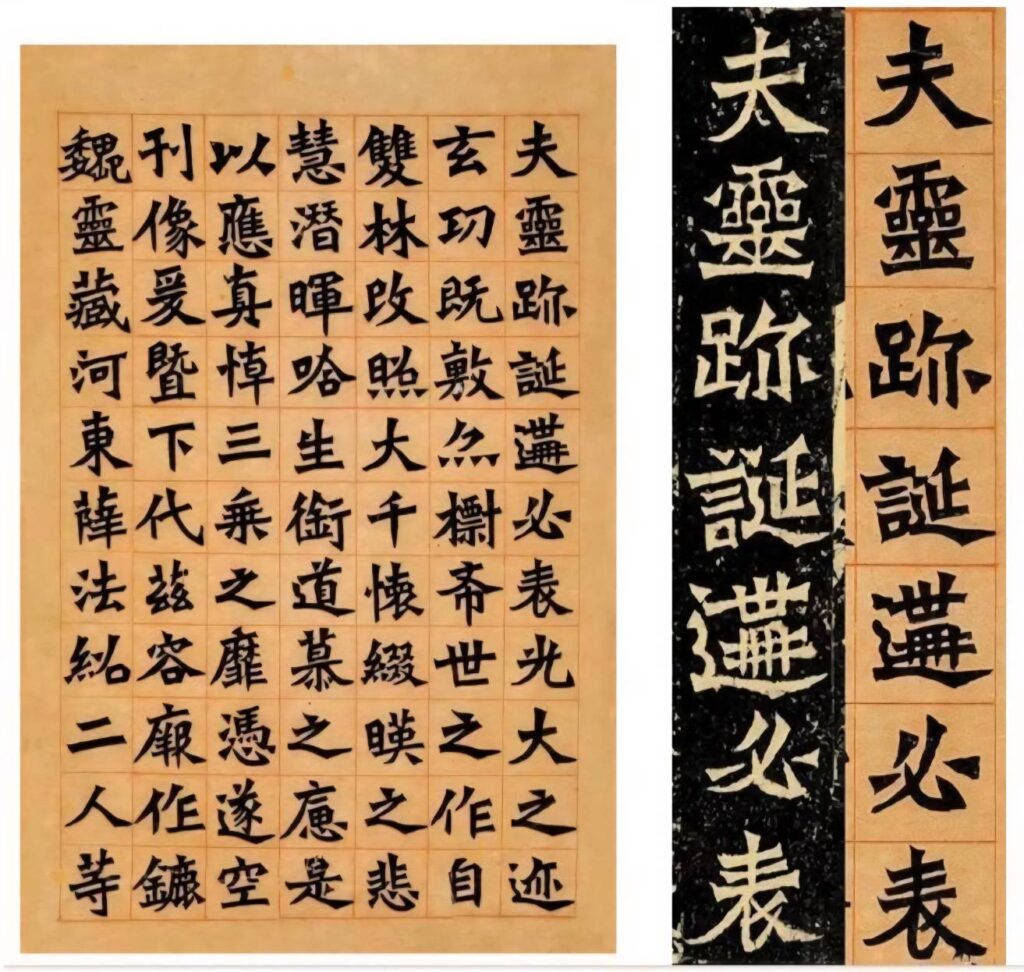 夫靈跡誕遘必表光大之迹
玄功既敷亦樹希世之作自
雙林改照大千懷綴暎之悲
慧潛暉唅生銜道慕之是
以應真悼三乘之靡憑遂空
刊像爰暨下代茲容厥作鑣
魏靈藏河東薛法紹二人等
夫靈跡誕遘必表
夫靈跡誕遘必表